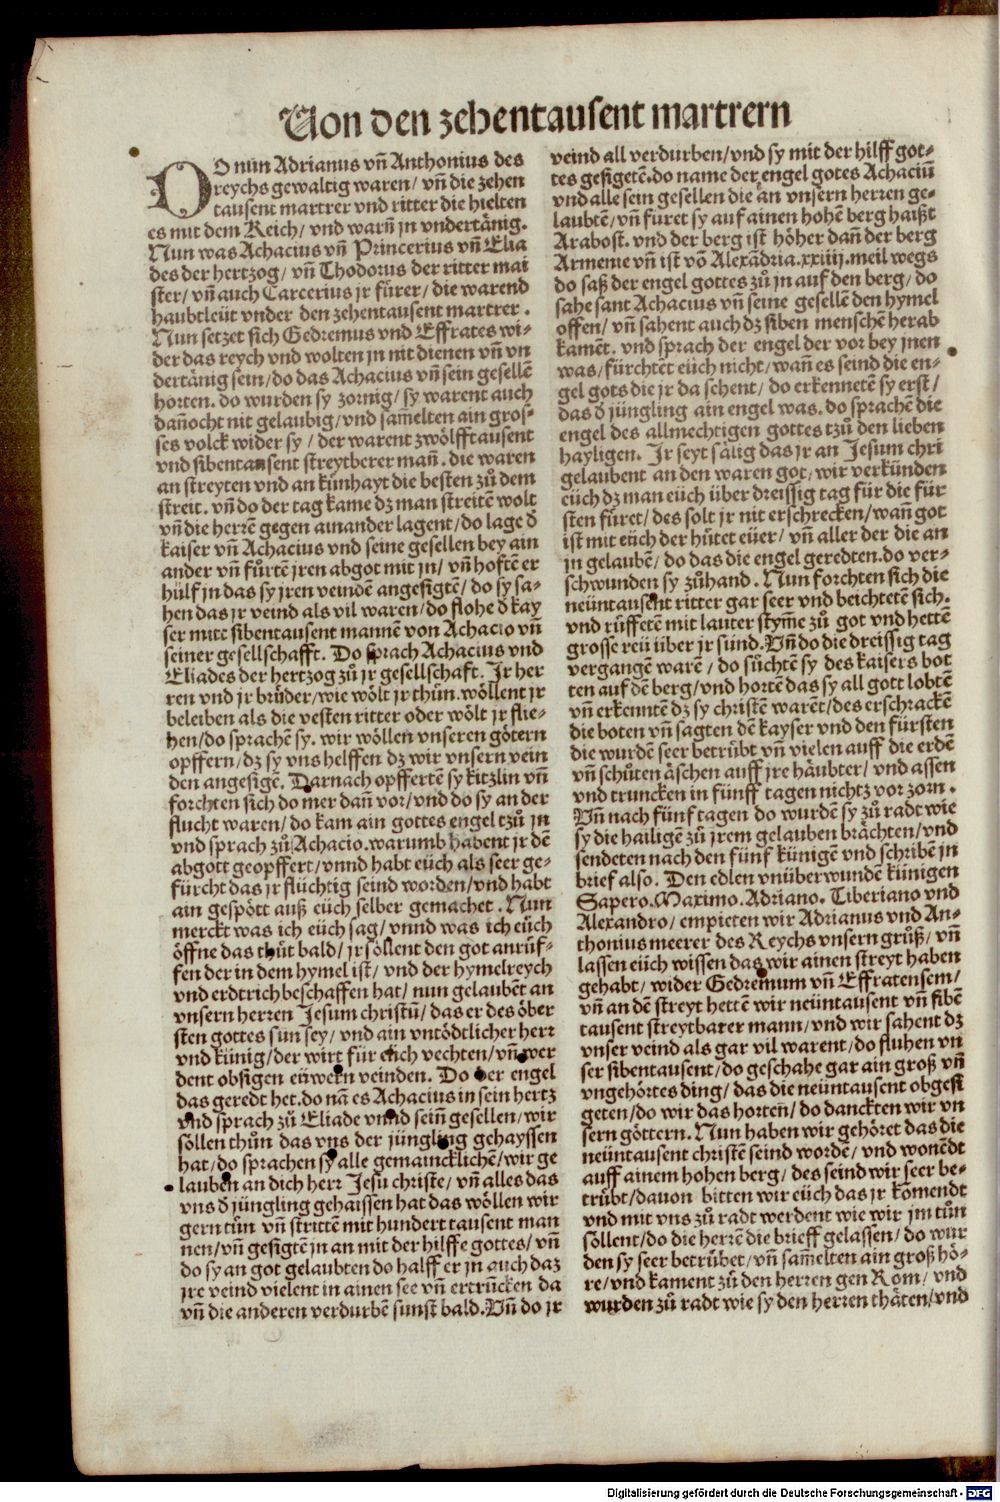 Von den zehentausent martrern
DO nun Adrianus vñ Anthonius des
reychs gewaltig waren/ vñ die zehen
tausent martrer vnd ritter die hielten
es mit dem Reich/ vnd warñ jn vndertänig.
Nun was Achacius vñ Princerius vñ Elia
des der hertzog/ vñ Thodorus der ritter mai
ster/ vñ auch Carcerius jr fürer/ die warend
haubtleüt vnder den zehentausent martrer.
Nun setzet sich Gedremus vnd Effrates wi-
der das reych vnd wolten jn nit dienen vñ vn
dertänig sein/ do das Achacius vñ sein gesellẽ
horten. do wurden sy zornig/ sy warent auch
dañocht nit gelaubig/ vnd sam̃elten ain gros-
ses volck wider sy/ der warent zwölfftausent
vnd sibentausent streytberer mañ. die waren
an streyten vnd an künhayt die besten zů dem
streit. vñ do der tag kame dz man streitẽ wolt
vñ die herrẽ gegen ainander lagent/ do lage d̕
kaiser vñ Achacius vnd seine gesellen bey ain
ander vñ fůrtẽ jren abgot mit jn/ vñ hoftẽ er
hülf jn das sy jren veindẽ angesigtẽ/ do sy sa-
hen das jr veind als vil waren/ do flohe d̕ kay
ser mitt sibentausent mannẽ von Achacio vñ
seiner gesellschafft. Do sprach Achacius vnd
Eliades der hertzog zů jr gesellschaft. Jr her
ren vnd jr brüder/ wie wölt jr thůn. wöllent jr
beleiben als die vesten ritter oder wölt jr flie-
hen/ do sprachẽ sy. wir wöllen vnseren götern
opffern/ dz sy vns helffen dz wir vnsern vein
den angesigẽ. Darnach opffertẽ sy kitzlin vñ
forchten sich do mer dañ vor/ vnd do sy an der
flucht waren/ do kam ain gottes engel tzů jn
vnd sprach zů Achacio. warumb habent jr dẽ
abgott geopffert/ vnnd habt eüch als seer ge-
fürcht das jr flüchtig seind worden/ vnd habt
ain gespött auß eüch selber gemachet. Nun
merckt was ich eüch sag/ vnnd was ich eüch
öffne das thůt bald/ jr söllent den got anrůf-
fen der in dem hymel ist/ vnd der hymelreych
vnd erdtrich beschaffen hat/ nun gelaubẽt an
vnsern herren Jesum christũ/ das er des öber
sten gottes sun sey/ vnd ain vntödtlicher herr
vnd künig/ der wirt für eüch vechten/ vñ wer
dent obsigen eüwern veinden. Do der engel
das geredt het. do nã es Achacius in sein hertz
vnd sprach zů Eliade vnnd seinẽ gesellen/ wir
söllen thůn das vns der jüngling gehayssen
hat/ do sprachen sy alle gemaincklichẽ/ wir ge
lauben an dich herr Jesu christe/ vñ alles das
vns d̕ jüngling gehaissen hat das wöllen wir
gern tůn vñ strittẽ mit hundert tausent man
nen/ vñ gesigtẽ jn an mit der hilffe gottes/ vñ
do sy an got gelaubten do halff er jn auch daz
jre veind vielent in ainen see vñ ertrũcken da
vñ die anderen verdurbẽ sunst bald. Vñ do jr
veind all verdurben/ vnd sy mit der hilff got-
tes gesigetẽ. do name der engel gotes Achaciũ
vnd alle sein gesellen die an vnsern herren ge-
laubtẽ/ vñ füret sy auf ainen hohẽ berg haißt
Arabost. vnd der berg ist höher dañ der berg
Armenie vñ ist võ Alexãdria. xxiiij. meil wegs
do saß der engel gottes zů jn auf den berg/ do
sahe sant Achacius vñ seine gesellẽ den hymel
offen/ vñ sahent auch dz siben menschẽ herab
kamẽt. vnd sprach der engel der vor bey jnen
was/ fürchtẽt eüch nicht/ wañ es seind die en-
gel gots die jr da sehent/ do erkennetẽ sy erst/
das d̕ jüngling ain engel was. do sprachẽ die
engel des allmechtigen gottes tzů den lieben
hayligen. Jr seyt sälig das jr an Jesum chri
gelaubent an den waren got/ wir verkünden
eüch dz man eüch über dreissig tag für die für
sten füret/ des solt jr nit erschrecken/ wañ got
ist mit eüch der hütet eüer/ vñ aller der die an
jn gelaubẽ/ do das die engel geredten. do ver-
schwunden sy zůhand. Nun forchten sich die
neüntausent ritter gar seer vnd beichtetẽ sich.
vnd rüffetẽ mit lauter stym̃e zů got vnd hettẽ
grosse reü über jr sünd. Vñ do die dreissig tag
vergangẽ warẽ/ do sůchtẽ sy des kaisers bot
ten auf dẽ berg/ vnd hortẽ das sy all gott lobtẽ
vñ erkenntẽ dz sy christẽ warẽt/ des erschrackẽ
die boten vñ sagten dẽ kayser vnd den fürsten
die wurdẽ seer betrübt vñ vielen auff die erdẽ
vñ schüten äschen auff jre häubter/ vnd assen
vnd truncken in fünff tagen nichtz vor zorn.
Vñ nach fünf tagen do wurdẽ sy zů radt wie
sy die hailigẽ zů jrem gelauben brächten/ vnd
sendeten nach den fünf künigẽ vnd schribẽ jn
brief also. Den edlen vnüberwundẽ künigen
Sapero. Maximo. Adriano. Tiberiano vnd
Alexandro/ empieten wir Adrianus vnd An-
thonius meerer des Reychs vnsern grůß/ vñ
lassen eüch wissen das wir ainen streyt haben
gehabt/ wider Gedremum vñ Effratensem/
vñ an dẽ streyt hettẽ wir neüntausent vñ sibẽ
tausent streytbarer mann/ vnd wir sahent dz
vnser veind als gar vil warent/ do fluhen vn
ser sibentausent/ do geschahe gar ain groß vñ
vngehörtes ding/ das die neüntausent obgesi
geten/ do wir das horten/ do danckten wir vn
sern göttern. Nun haben wir gehöret das die
neüntausent christẽ seind wordẽ/ vnd wonẽdt
auff ainem hohen berg/ des seind wir seer be-
trübt/ dauon bitten wir eüch das jr komendt
vnd mit vns zů radt werdent wie wir jm tůn
söllent/ do die herrẽ die brieff gelassen/ do wur
den sy seer betrübet/ vñ sam̃elten ain groß hö-
re/ vnd kament zů den herren gen Rom/ vnd
wurden zů radt wie sy den herren thäten/ vnd
Digitalisierung gefördert durch die Deutsche Forschungsgemeinschaft - DFG